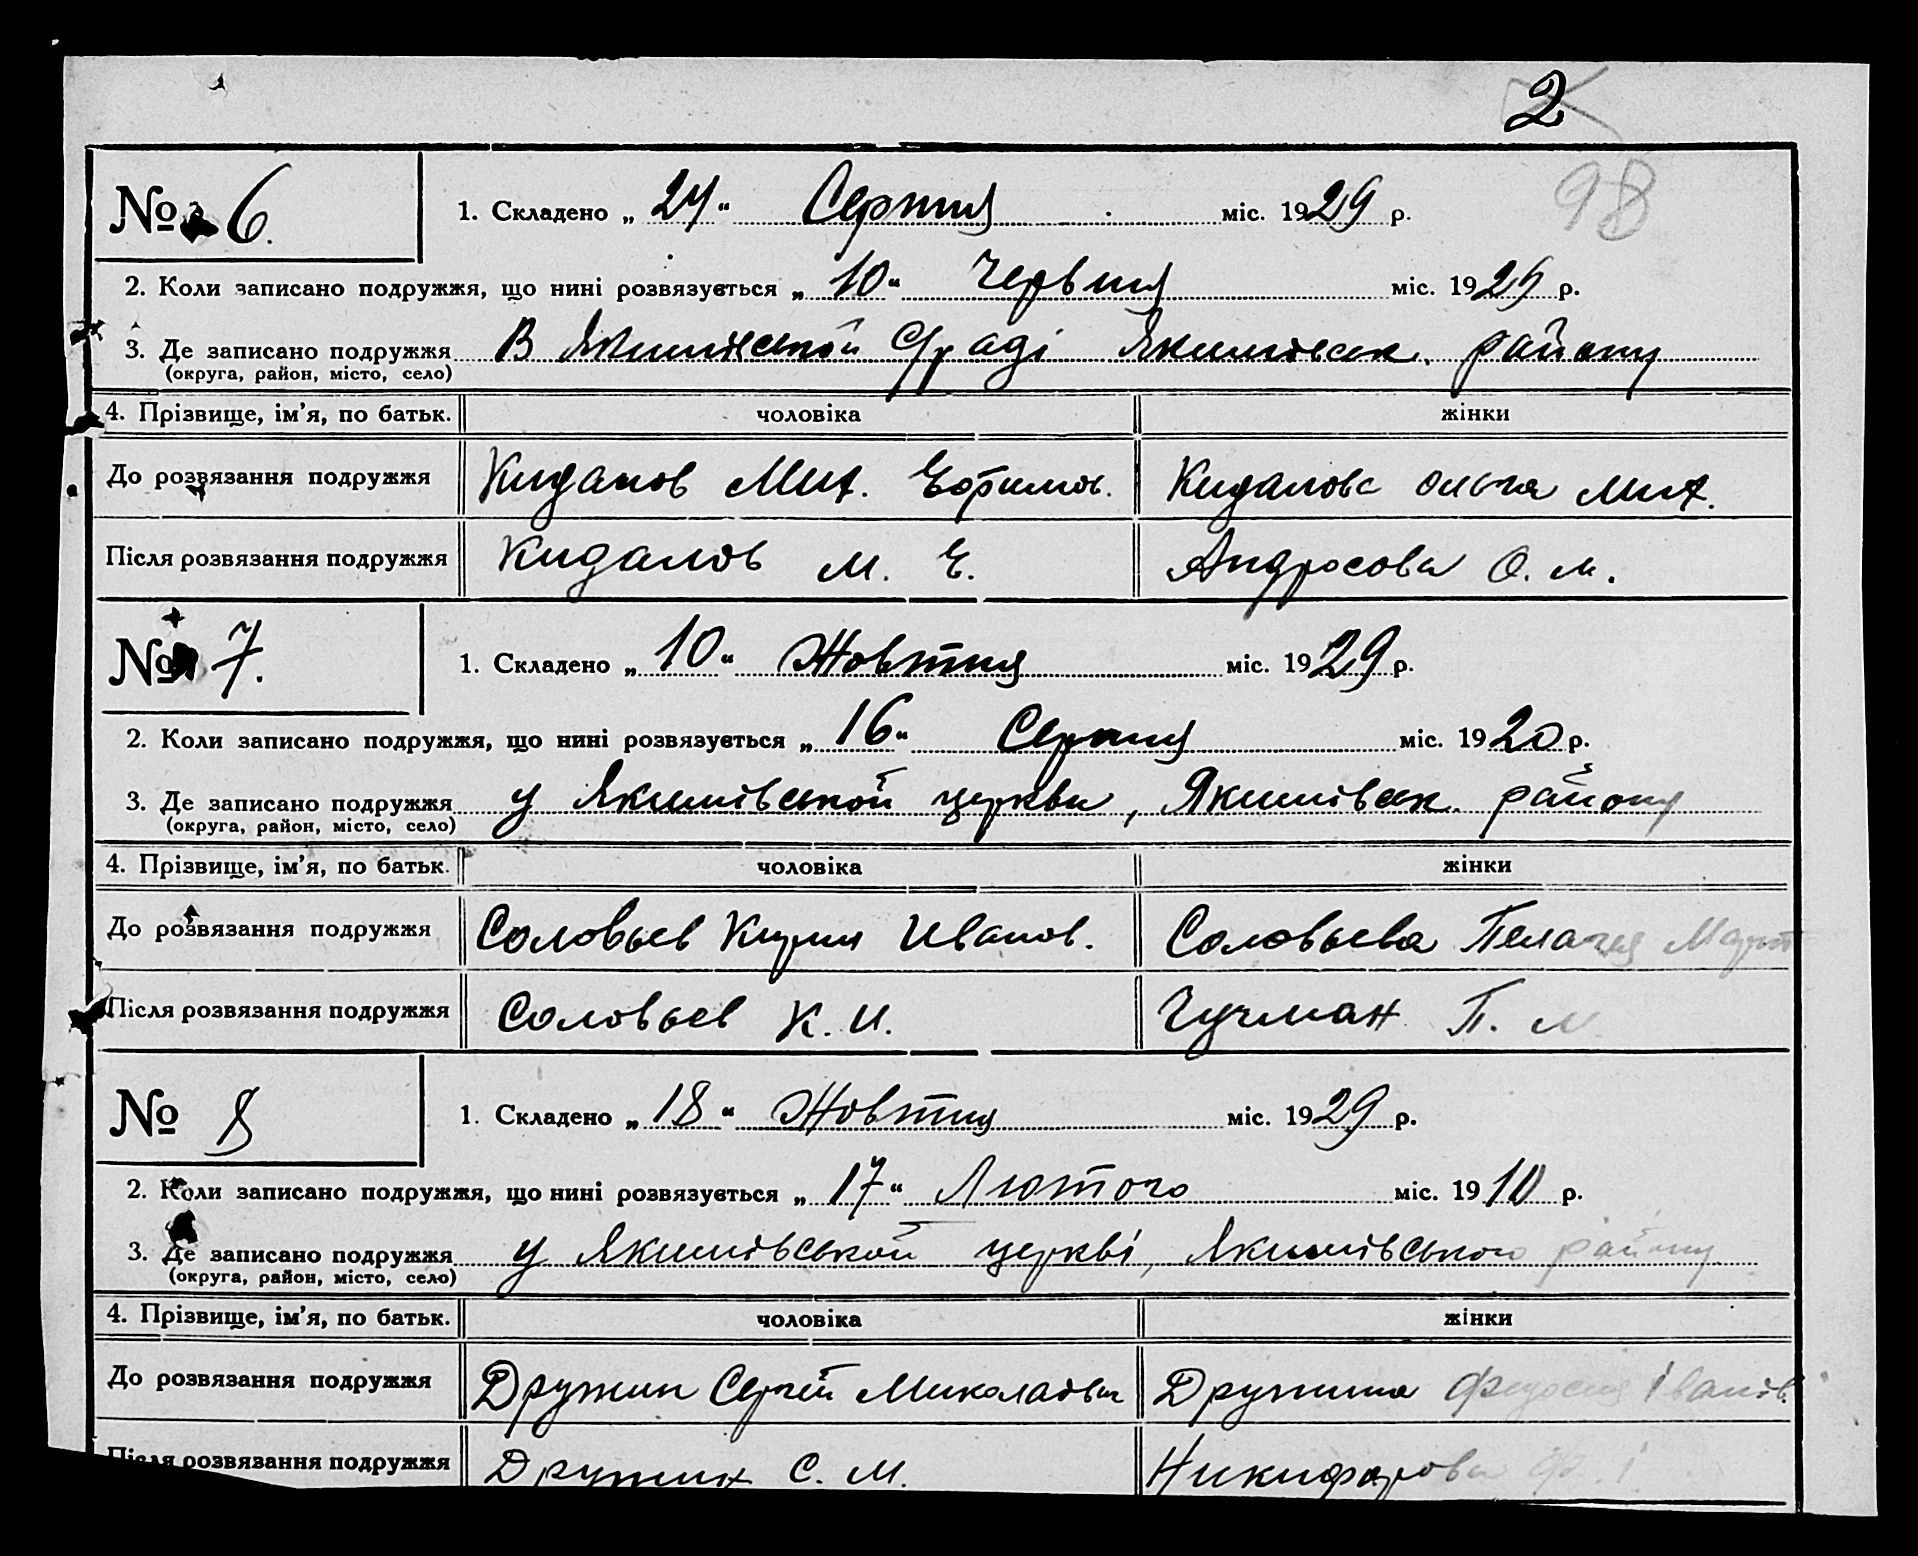 2
98
№ 6.
1. Складено „ 24 “ Серпня міс. 1929 р.
2. Коли записано подружжя, що нині розвязується „ 10 “ Червня міс. 1929 р.
3. Де записано подружжя В Якимівській С/раді Якимівськ. району
(округа, район, місто, село)
4. Прізвище, ім’я, по батьк. чоловіка жінки
До розвязання подружжя Кидалов Мих. Ефимов. Кидалова Ольга Мих.
Після розвязання подружжя Кидалов М. Е. Андросова О. М.
№ 7.
1. Складено „ 10 “ Жовтня міс. 1929 р.
2. Коли записано подружжя, що нині розвязується „ 16 “ Серпня міс. 1920 р.
3. Де записано подружжя у Якимівськой церкви, Якимівськ. району
(округа, район, місто, село)
4. Прізвище, ім’я, по батьк. чоловіка жінки
До розвязання подружжя Соловьев Кирил Иванов. Соловьева Пелагея Март
Після розвязання подружжя Соловьев К. И. Гучман П. М
№ 8
1. Складено „ 18 “ Жовтня міс. 1929 р.
2. Коли записано подружжя, що нині розвязується „ 17 “ Лютого міс. 1910 р.
3. Де записано подружжя у Якимівськой церкві, Якимівського району
(округа, район, місто, село)
4. Прізвище, ім’я, по батьк. чоловіка жінки
До розвязання подружжя Дружин Сергій Миколаевич Дружина Федосия Іванів.
Після розвязання подружжя Дружин С. М. Никифорова Ф. І